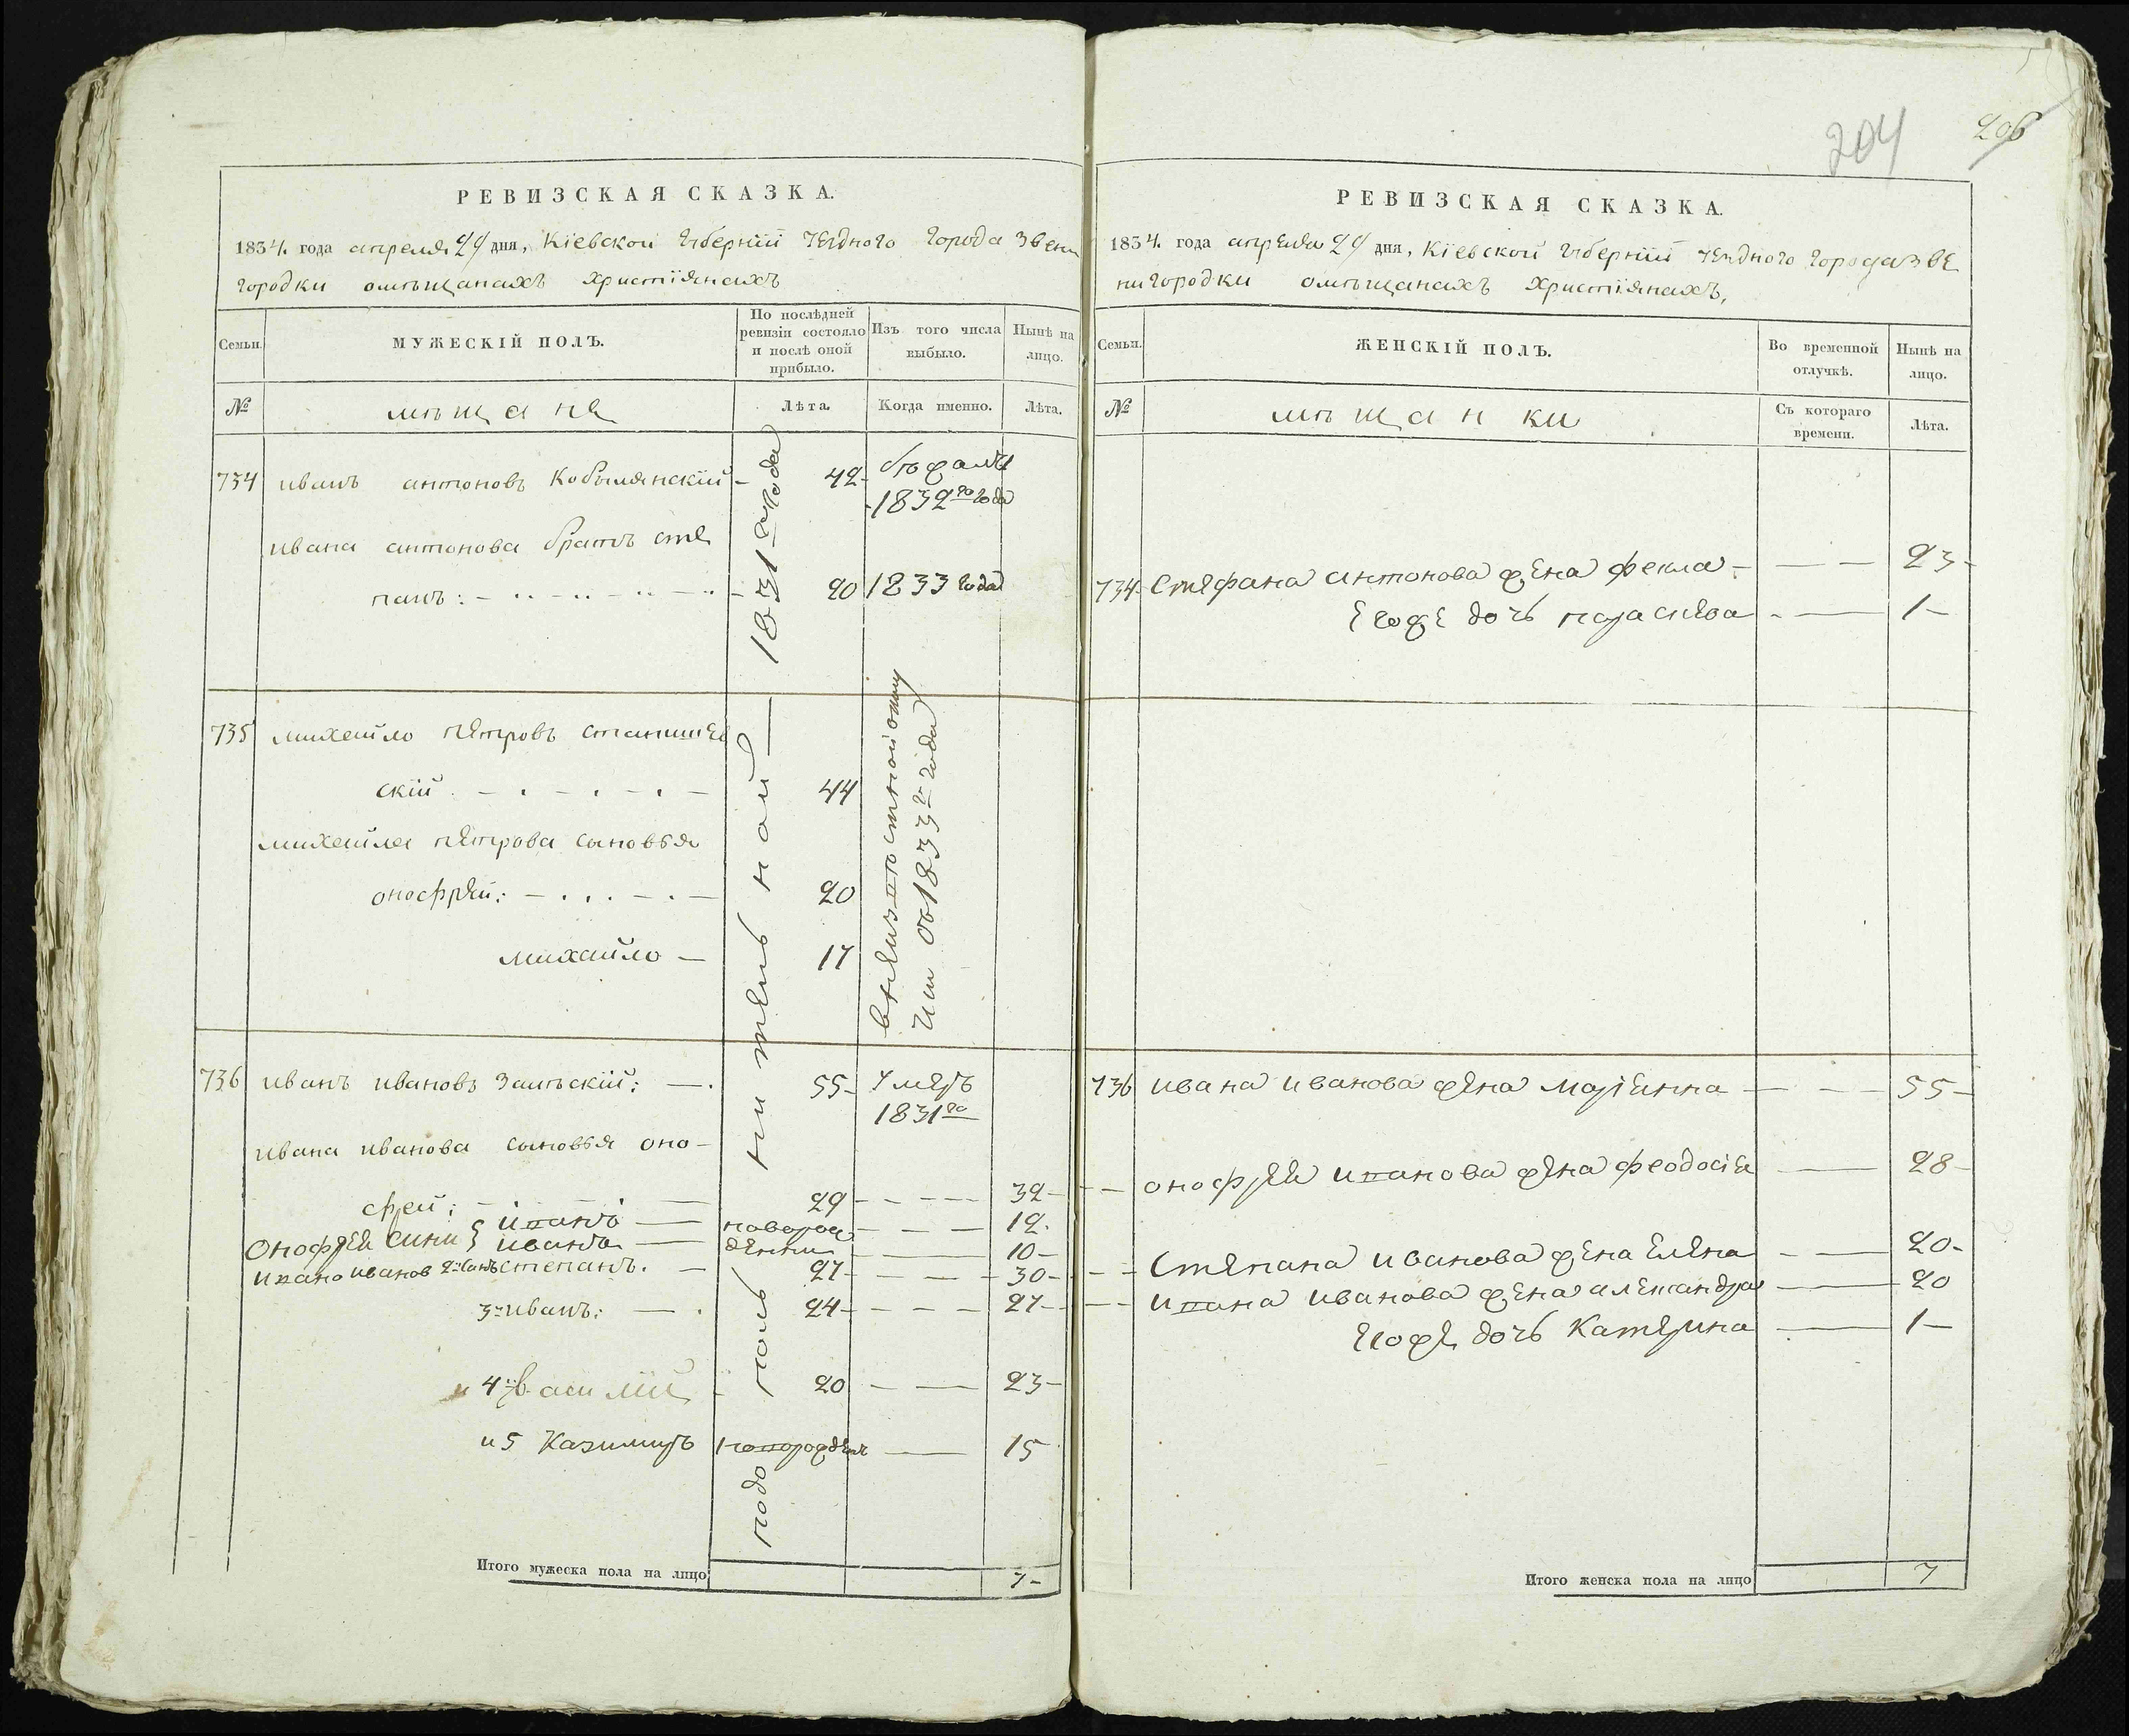 204
206
РЕВИЗСКАЯ СКАЗКА.
1834. года апреля 24 дня, Кіевской губерніи уезднаго города Звени
городки омѣщанахъ христіянахъ
Семьи. МУЖЕСКІЙ ПОЛЪ. По послѣдней ревизіи состояло и послѣ оной прибыло. Изъ того числа выбыло. Нынѣ на лицо.
№ мѣщане Лѣта. Когда именно. Лѣта.
734 иванъ антоновъ Кобылянскій - 42 - бѣжалъ
1832го года
ивана антонова братъ сте
панъ: - 20 1833 года
735 михайло петровъ станишев
скій. 44
михайла петрова сыновья
онофрей: 20
михайло - 17
736 иванъ ивановъ Залѣскій: - 55 - умеръ
1831го
ивана иванова сыновья оно-
фрей: 29 32 -
Онофрея сини { иванъ новорож 12.
иванъ денни 10 -
ивано иванов 2й сынъ степанъ. 27 - 30 -
3й иванъ: 24 - 27 -
и 4й василій 20 23 -
и 5 Казимиръ новорожден 15
1831 года
подополнительной
1833го года
Итого мужеска пола на лицо 7 -
РЕВИЗСКАЯ СКАЗКА.
1834. года апреля 24 дня, Кіевской губерніи уезднаго города Зве
нигородки омѣщанахъ христіянахъ,
Семьи. ЖЕНСКІЙ ПОЛЪ. Во временной отлучкѣ. Нынѣ на лицо.
№ мѣщанки Съ котораго времени. Лѣта.
734 Стефана антонова жена фекла - 23 -
Егоже дочь параскева 1 -
736 ивана иванова жена Маріанна 55 -
онофрея иванова жена феодосія 28 -
Степана иванова жена Елена 20 -
ивана иванова жена александра 20
Егоже дочь Катерина 1 -
Итого женска пола на лицо 7